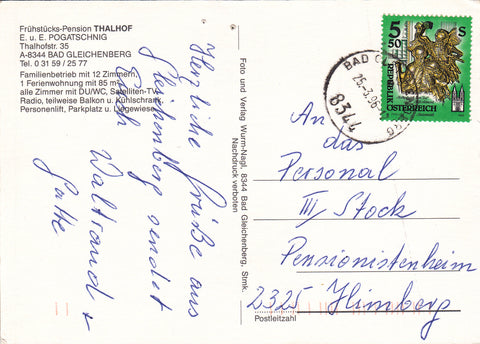 Frühstücks-Pension THALHOF
E. u. E. POGATSCHNIG
Thalhofstr. 35
A-8344 BAD GLEICHENBERG
Tel. 0 31 59 / 25 77
Familienbetrieb mit 12 Zimmern,
1 Ferienwohnung mit 85 m²,
alle Zimmer mit DU/WC, Satelliten-TV,
Radio, teilweise Balkon u. Kühlschrank,
Personenlift, Parkplatz u. Liegewiese.
Herzliche Grüße aus
Gleichenberg sendet
Euch
Waltraud +
Gatte
Foto und Verlag Wurm-Nagl, 8344 Bad Gleichenberg, Stmk.
Nachdruck verboten
5 50 S
REPUBLIK
ÖSTERREICH
BAD
25.3.96
8344
An
das
Personal
III Stock
Pensionistenheim
2325 Himberg
Postleitzahl